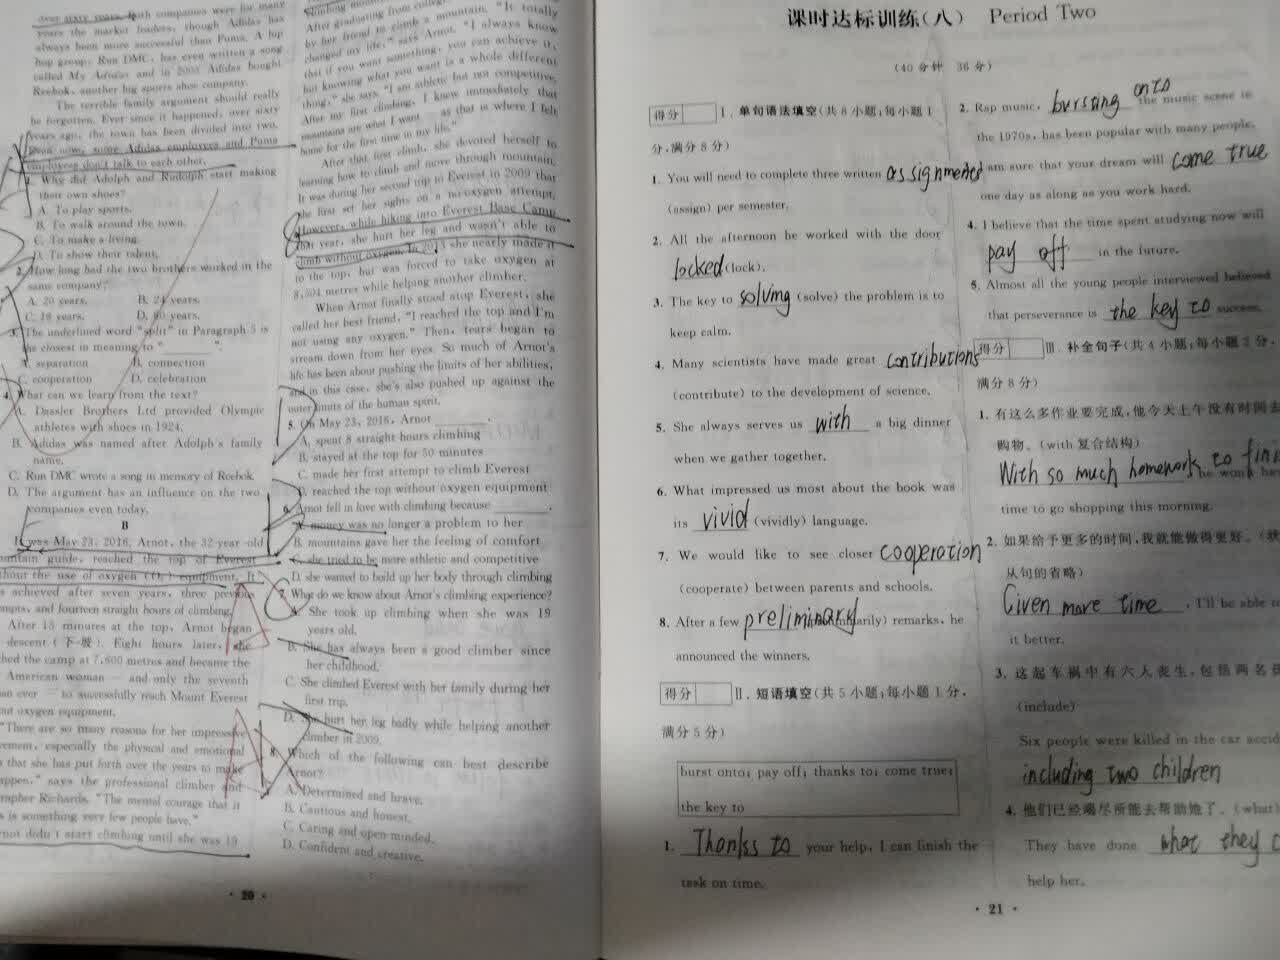 over sixty years. Both companies were for many
years the market leaders, though Adidas has
always been more successful than Puma. A hip
hop group, Run DMC, has even written a song
called My Adidas and in 2005 Adidas bought
Reebok, another big sports shoe company.
The terrible family argument should really
be forgotten. Ever since it happened, over sixty
years ago, the town has been divided into two.
Even now, some Adidas employees and Puma
employees don't talk to each other.
1. Why did Adolph and Rudolph start making
their own shoes?
A. To play sports.
B. To walk around the town.
C. To make a living.
D. To show their talent.
2. How long had the two brothers worked in the
same company?
A. 20 years. B. 24 years.
C. 18 years. D. 60 years.
3. The underlined word "split" in Paragraph 5 is
the closest in meaning to "________".
A. separation B. connection
C. cooperation D. celebration
4. What can we learn from the text?
A. Dassler Brothers Ltd provided Olympic
athletes with shoes in 1924.
B. Adidas was named after Adolph's family
name.
C. Run DMC wrote a song in memory of Reebok.
D. The argument has an influence on the two
companies even today.
B
It was May 23, 2016. Arnot, the 32-year-old
mountain guide, reached the top of Everest
without the use of oxygen (O₂) equipment. It
achieved after seven years, three previous
and fourteen straight hours of climbing.
After 15 minutes at the top, Arnot began
descent (下坡). Eight hours later, she
the camp at 7,600 metres and became the
American woman — and only the seventh
ever — to successfully reach Mount Everest
oxygen equipment.
"There are so many reasons for her impressive
especially the physical and emotional
that she has put forth over the years to make
says the professional climber and
Richards. "The mental courage that it
is something very few people have."
didn't start climbing until she was 19
After graduating from college
by her friend to climb a mountain. "It totally
changed my life," says Arnot. "I always knew
that if you want something, you can achieve it,
but knowing what you want is a whole different
thing," she says. "I am athletic but not competitive.
After my first climbing, I knew immediately that
mountains are what I want as that is where I felt
home for the first time in my life."
After that first climb, she devoted herself to
learning how to climb and move through mountain.
It was during her second trip to Everest in 2009 that
she first set her sights on a no-oxygen attempt.
However, while hiking into Everest Base Camp
that year, she hurt her leg and wasn't able to
climb without oxygen. In 2013 she nearly made it
to the top, but was forced to take oxygen at
8,504 metres while helping another climber.
When Arnot finally stood atop Everest, she
called her best friend, "I reached the top and I'm
not using any oxygen." Then, tears began to
stream down from her eyes. So much of Arnot's
life has been about pushing the limits of her abilities,
and in this case, she's also pushed up against the
outer limits of the human spirit.
5. On May 23, 2016, Arnot ________.
A. spent 8 straight hours climbing
B. stayed at the top for 50 minutes
C. made her first attempt to climb Everest
D. reached the top without oxygen equipment
6. Arnot fell in love with climbing because ________.
A. money was no longer a problem to her
B. mountains gave her the feeling of comfort
C. she tried to be more athletic and competitive
D. she wanted to build up her body through climbing
7. What do we know about Arnot's climbing experience?
A. She took up climbing when she was 19
years old.
B. She has always been a good climber since
her childhood.
C. She climbed Everest with her family during her
first trip.
D. She hurt her leg badly while helping another
climber in 2009.
8. Which of the following can best describe
Arnot?
A. Determined and brave.
B. Cautious and honest.
C. Caring and open-minded.
D. Confident and creative.
· 20 ·
课时达标训练(八) Period Two
(40分钟 36分)
得分 Ⅰ. 单句语法填空(共8小题;每小题1
分,满分8分)
1. You will need to complete three written assignments
(assign) per semester.
2. All the afternoon he worked with the door
locked (lock).
3. The key to solving (solve) the problem is to
keep calm.
4. Many scientists have made great contributions
(contribute) to the development of science.
5. She always serves us with a big dinner
when we gather together.
6. What impressed us most about the book was
its vivid (vividly) language.
7. We would like to see closer cooperation
(cooperate) between parents and schools.
8. After a few preliminary remarks, he
announced the winners.
得分 Ⅱ. 短语填空(共5小题;每小题1分,
满分5分)
burst onto; pay off; thanks to; come true;
the key to
1. Thanks to your help, I can finish the
task on time.
2. Rap music, bursting onto the music scene in
the 1970s, has been popular with many people.
am sure that your dream will come true
one day as along as you work hard.
4. I believe that the time spent studying now will
pay off in the future.
5. Almost all the young people interviewed believed
that perseverance is the key to success.
得分 Ⅲ. 补全句子(共4小题;每小题2分,
满分8分)
1. 有这么多作业要完成,他今天上午没有时间去
购物。(with复合结构)
With so much homework to
time to go shopping this morning.
2. 如果给予更多的时间,我就能做得更好。(状
从句的省略)
Given more time, I'll be able
it better.
3. 这起车祸中有六人丧生,包括两名孩
(include)
Six people were killed in the car
including two children
4. 他们已经竭尽所能去帮助她了。(what)
They have done what they
help her.
· 21 ·